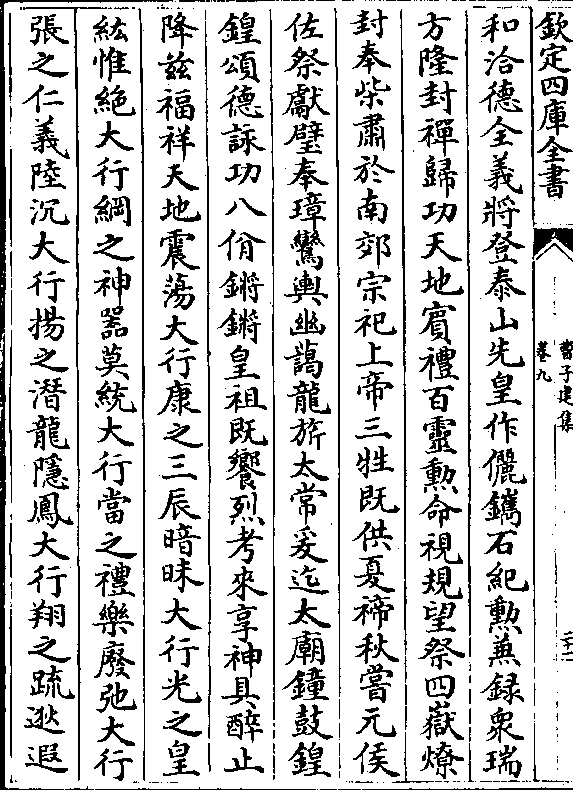 欽定四庫全書
曹子建集
卷九
二十一
和洽德全義將登泰山先皇作儷鐫石紀勲兼録衆瑞
方隆封禪歸功天地賓禮百靈勲命視規望祭四嶽燎
封奉柴肅於南郊宗祀上帝三牲既供夏禘秋嘗元侯
佐祭獻璧奉璋鸞輿幽藹龍旂太常爰迄太廟鐘鼓鍠
鍠頌德詠功八佾鏘鏘皇祖既饗烈考來享神具醉止
降兹福祥天地震蕩大行康之三辰暗昧大行光之皇
紘惟絶大行綱之神器莫統大行當之禮樂廢弛大行
張之仁義陸沉大行揚之潛龍隱鳳大行翔之疏逖遐